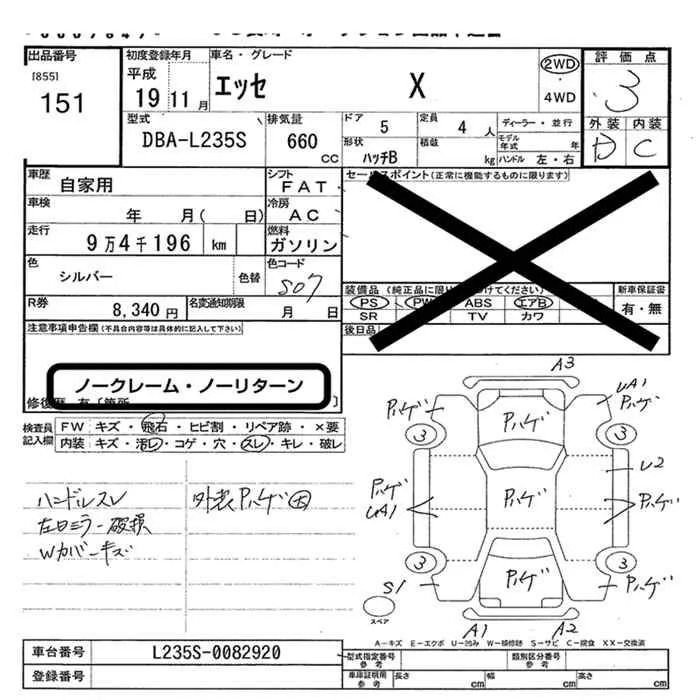 出品番号
[855]
151
初度登録年月
平成
19 11 月
車名・グレード
エッセ X
2WD
4WD
評価点
3
外装 内装
D C
型式
DBA-L235S
排気量
660
CC
ドア
5
定員
4 人
ディーラー・並行
モデル
年式 年
形状
ハッチB
積載
kg
ハンドル 左・右
車歴
自家用
シフト
FAT
車検
年 月( 日)
冷房
AC
走行
9万4千196 km
燃料
ガソリン
色
シルバー
色替
色コード
S07
R券
8,340 円
名変通知期限
月 日
セールスポイント(正常に機能するものに限ります)
装備品
PS PW ABS エアB
SR TV カワ
後日品
新車保証書
有・無
注意事項申告欄(不具合内容等は具体的に記入して下さい)
ノークレーム・ノーリターン
検査員
記入欄
FW キズ・飛石・ヒビ割・リペア跡・×要
内装 キズ・汚レ・コゲ・穴・スレ・キレ・破レ
ハンドルスレ
左日ミラー破損
Wカバーキズ
外装Pハゲ大
A3
UA1
Pハゲ
Pハゲ
Pハゲ
3
3
U2
Pハゲ
UA1
Pハゲ
Pハゲ
3
3
S1
Pハゲ
Pハゲ
スペア
A1
A2
A-キズ E-エクボ U-凹み W-補修跡 S-サビ C-腐食 XX-交換済
車台番号
L235S-0082920
登録番号
型式指定番号
参考
類別区分番号
参考
車庫証明用
参考
長さ cm
幅 cm
高さ cm